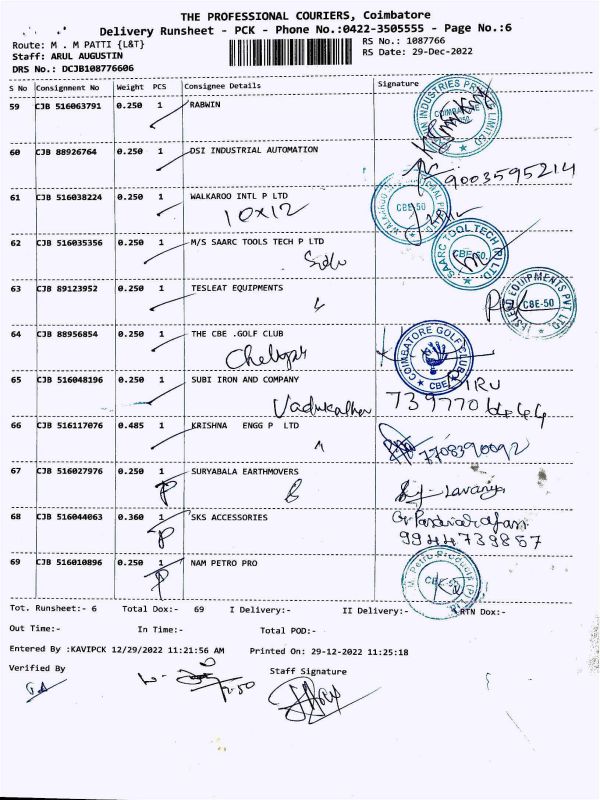 THE PROFESSIONAL COURIERS, Coimbatore
Delivery Runsheet - PCK - Phone No.:0422-3505555 - Page No.:6
Route: M . M PATTI {L&T}
RS No.: 1087766
Staff: ARUL AUGUSTIN
RS Date: 29-Dec-2022
DRS No.: DCJB108776606
S No Consignment No Weight PCS Consignee Details Signature
59 CJB 516063791 0.250 1 RABWIN
60 CJB 88926764 0.250 1 DSI INDUSTRIAL AUTOMATION
9003595214
61 CJB 516038224 0.250 1 WALKAROO INTL P LTD
10x12
CBE-50
62 CJB 516035356 0.250 1 M/S SAARC TOOLS TECH P LTD
SAARC TOOL TECH (P) LTD
CBE-50
63 CJB 89123952 0.250 1 TESLEAT EQUIPMENTS
EQUIPMENTS PVT LTD
CBE-50
64 CJB 88956854 0.250 1 THE CBE .GOLF CLUB
COIMBATORE GOLF CLUB
CBE
65 CJB 516048196 0.250 1 SUBI IRON AND COMPANY
66 CJB 516117076 0.485 1 KRISHNA ENGG P LTD
7708390092
67 CJB 516027976 0.250 1 SURYABALA EARTHMOVERS
68 CJB 516044063 0.360 1 SKS ACCESSORIES
9944739857
69 CJB 516010896 0.250 1 NAM PETRO PRO
Tot. Runsheet:- 6 Total Dox:- 69 I Delivery:- II Delivery:- RTN Dox:-
Out Time:- In Time:- Total POD:-
Entered By :KAVIPCK 12/29/2022 11:21:56 AM Printed On: 29-12-2022 11:25:18
Verified By Staff Signature